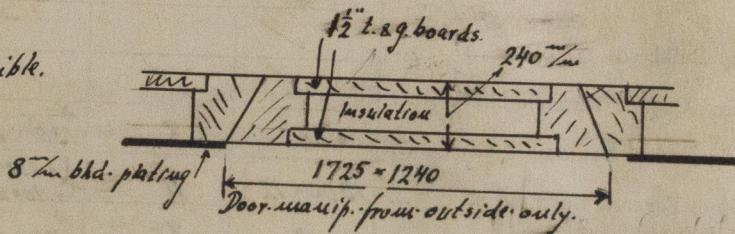 1½" t. & g. boards.
ible.
240 m/m
Insulation
8 m/m bhd. plating
1725 × 1240
Door manip. from outside only.